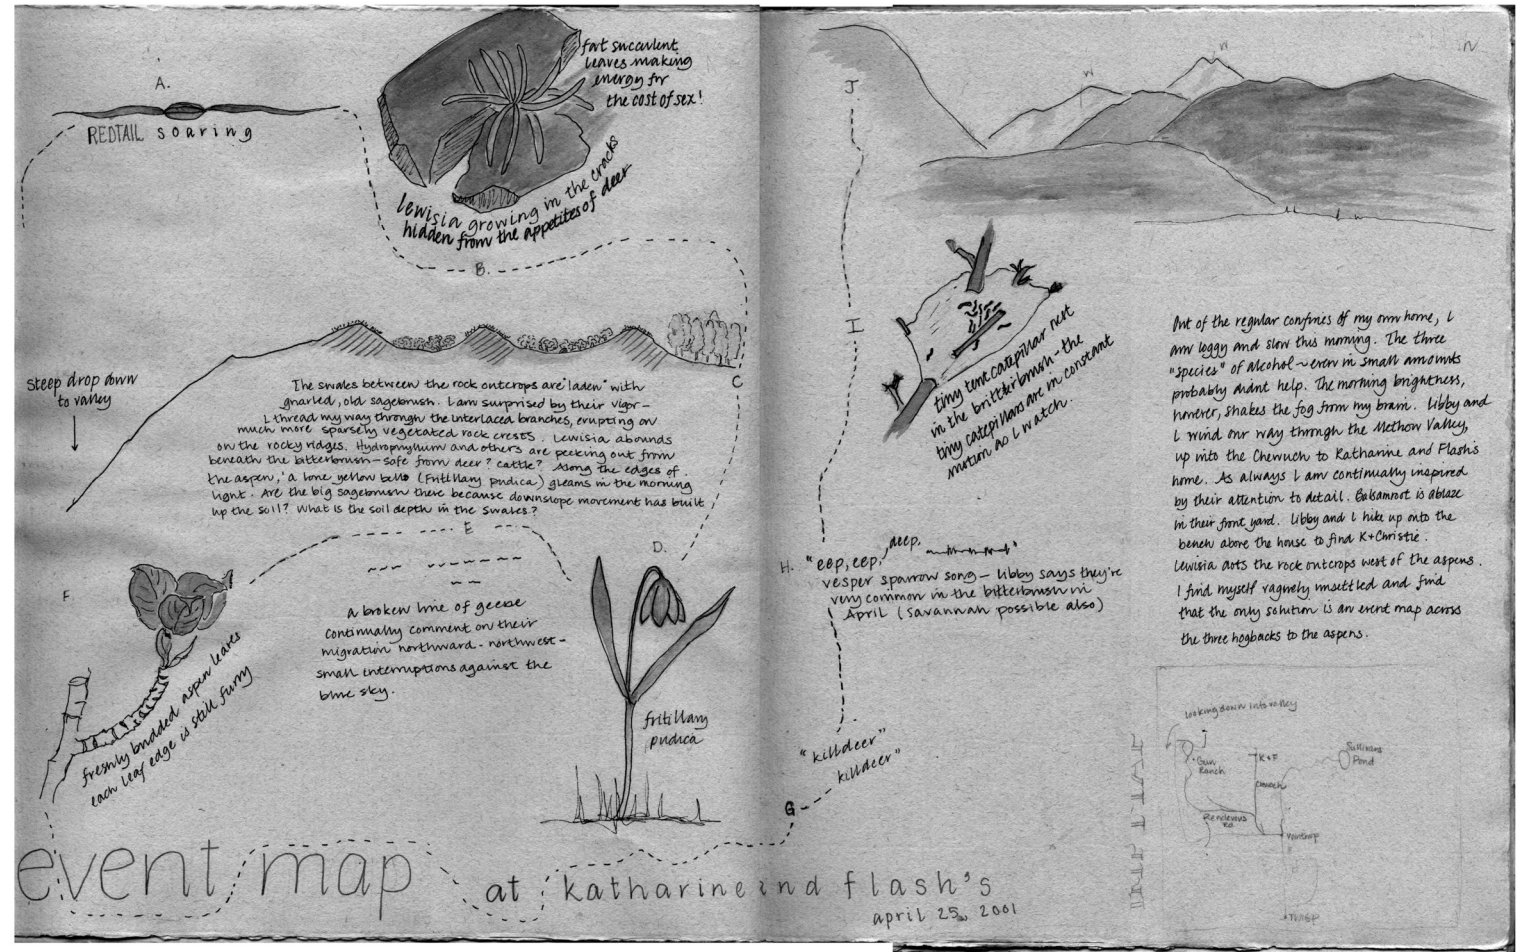 A.
REDTAIL soaring
fat succulent
leaves making
energy for
the cost of sex!
lewisia growing in the cracks
hidden from the appetites of deer
B.
steep drop down
to valley
C
The swales between the rock outcrops are "laden" with
gnarled, old sagebrush. I am surprised by their vigor -
I thread my way through the interlaced branches, erupting on
much more sparsely vegetated rock crests. Lewisia abounds
on the rocky ridges. Hydrophyllum and others are peeking out from
beneath the bitterbrush - safe from deer? cattle? Along the edges of
the aspen, a lone yellow bell (Fritillary pudica) gleams in the morning
light. Are the big sagebrush there because downslope movement has built
up the soil? What is the soil depth in the swales?
E
D.
F.
a broken line of geese
continually comment on their
migration northward - northwest -
small interruptions against the
blue sky.
freshly budded aspen leaves
each leaf edge is still furry
fritillary
pudica
event map at katharine and flash's
april 25, 2001
J.
W
W
N
I
tiny tent catepillar nest
in the britterbrush - the
tiny catepillars are in constant
motion as I watch.
H. "eep, eep, deep,
vesper sparrow song - Libby says they're
very common in the bitterbrush in
April (Savannah possible also)
"killdeer"
killdeer"
G
Out of the regular confines of my own home, I
am loggy and slow this morning. The three
"species" of alcohol - even in small amounts
probably didnt help. The morning brightness,
however, shakes the fog from my brain. Libby and
I wind our way through the Methow Valley,
up into the Chewuch to Katharine and Flash's
home. As always I am continually inspired
by their attention to detail. Balsamroot is ablaze
in their front yard. Libby and I hike up onto the
bench above the house to find K+Christie.
Lewisia dots the rock outcrops west of the aspens.
I find myself vaguely unsettled and find
that the only solution is an event map across
the three hogbacks to the aspens.
looking down into valley
J
Gun
Ranch
K+F
Chewuch
Sullivans
Pond
Rendevous
Rd
Winthrop
Twisp